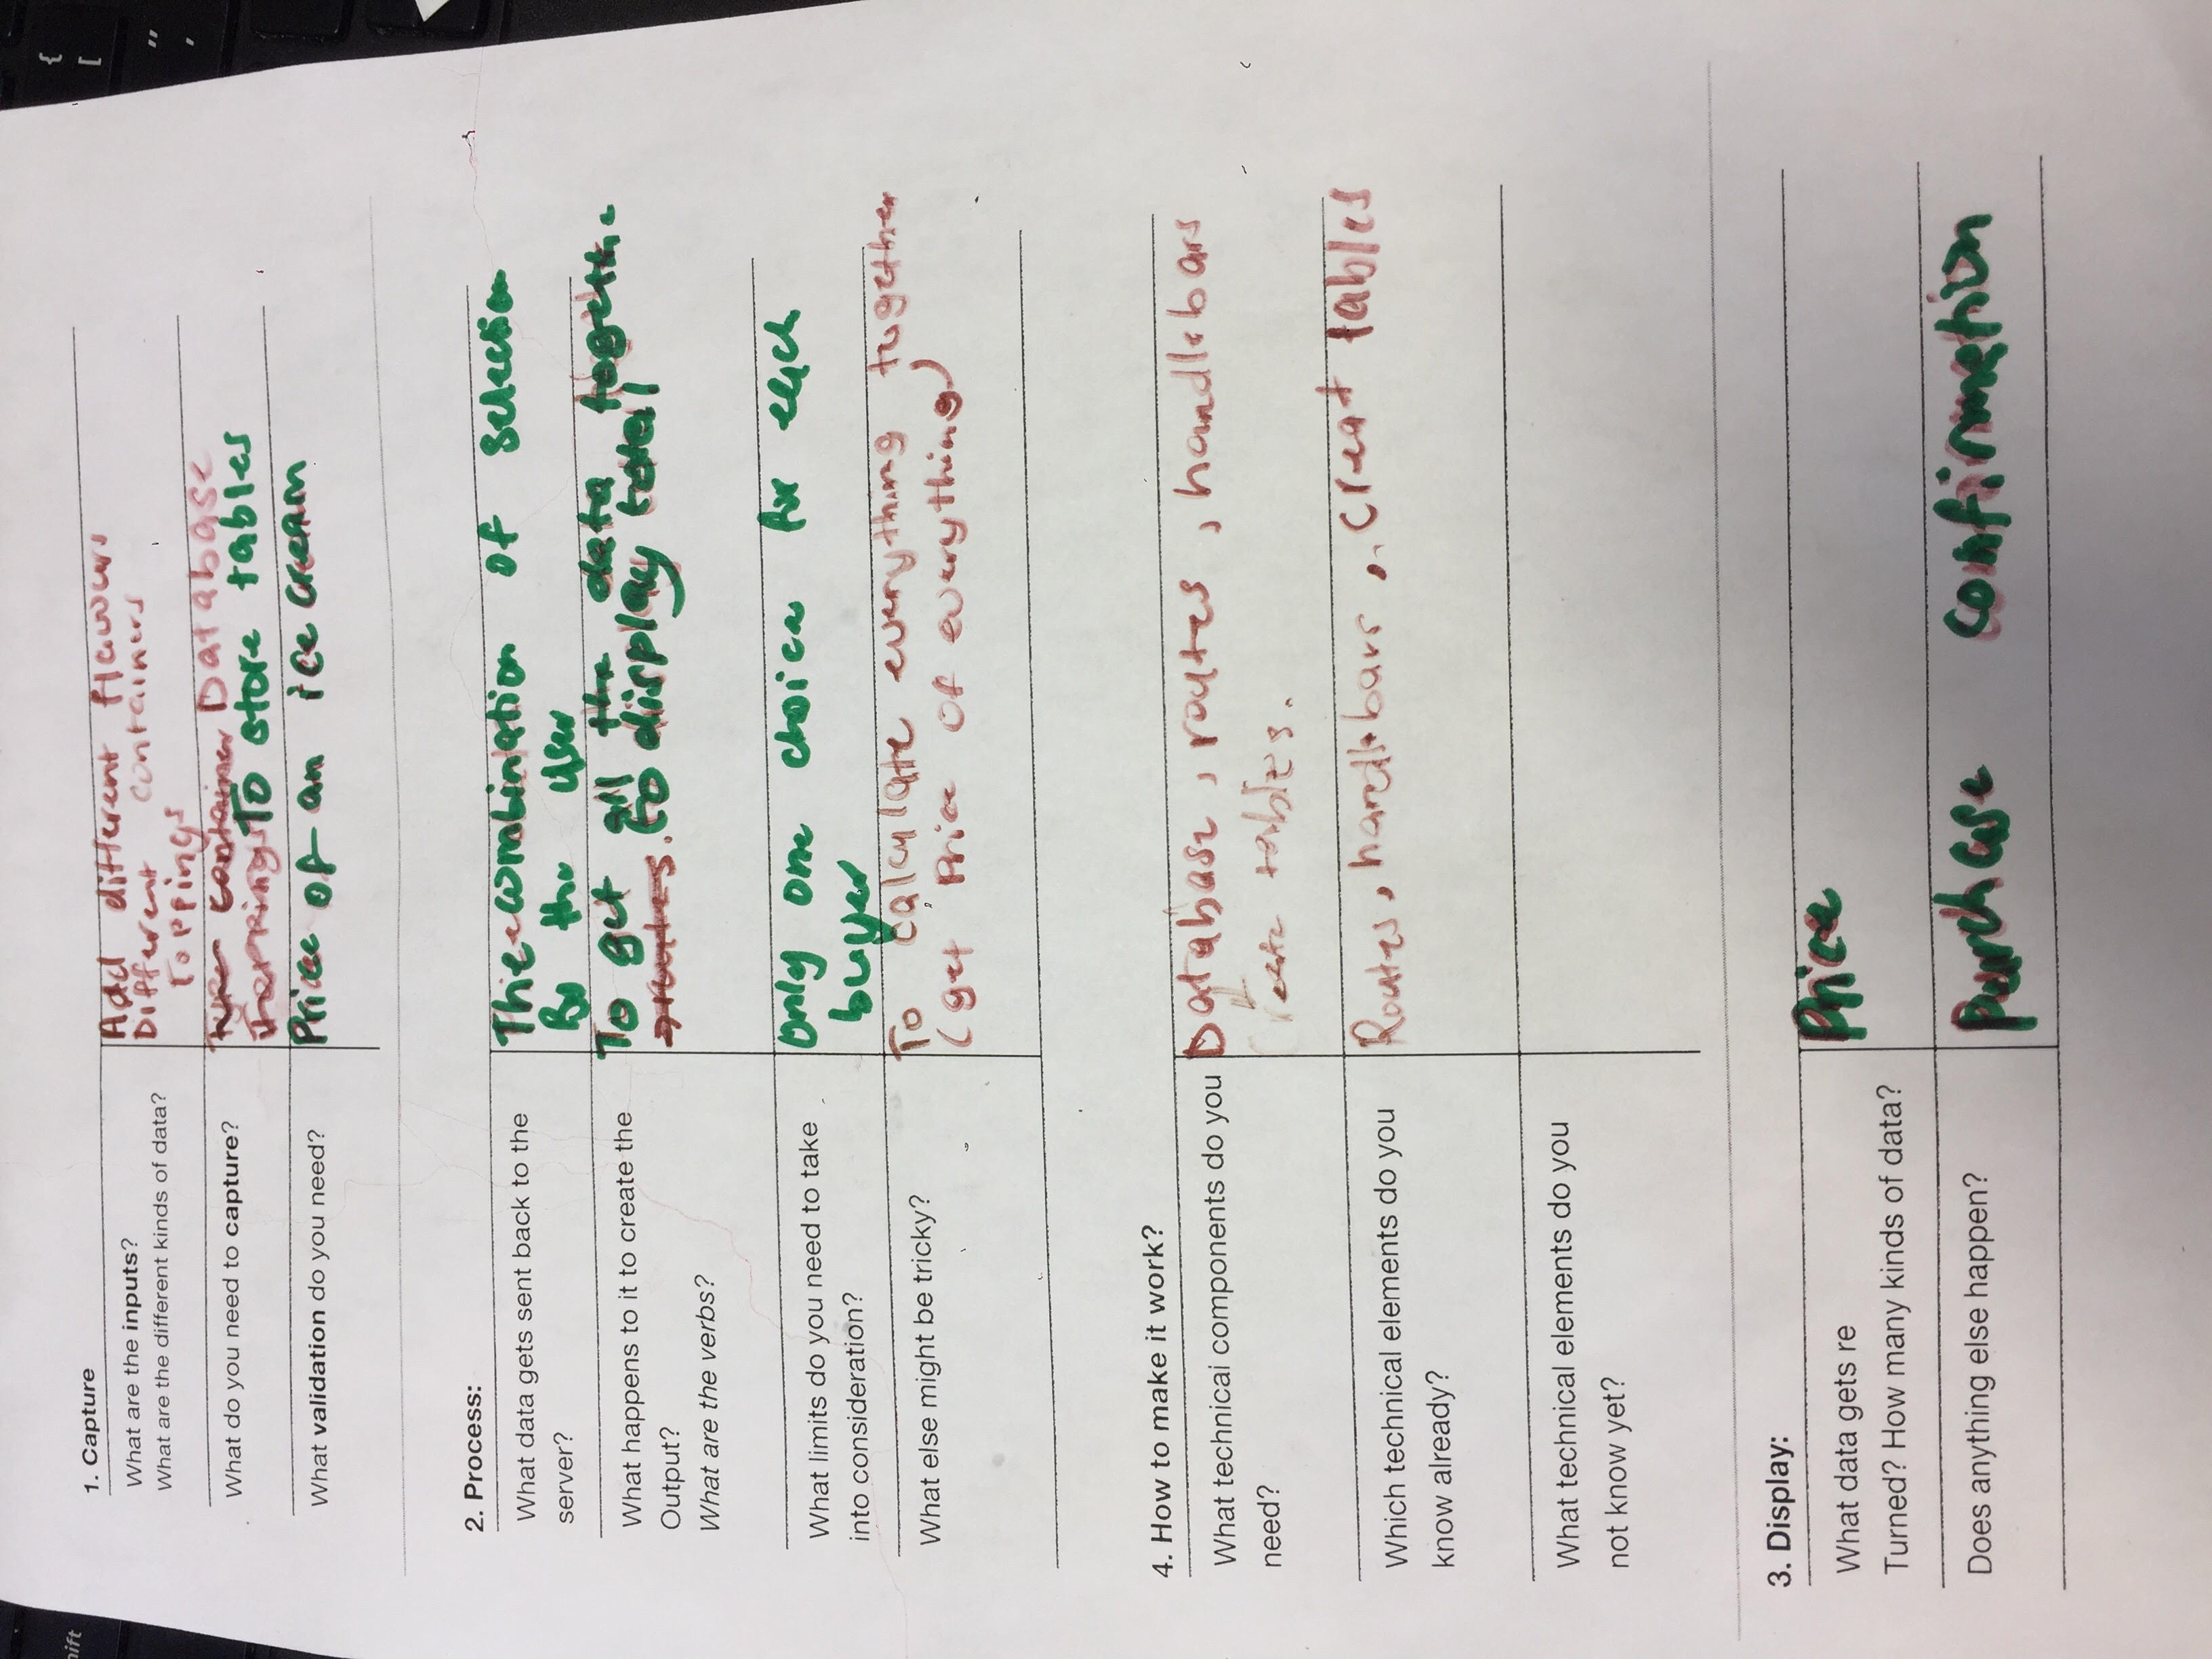 1. Capture
What are the inputs?
What are the different kinds of data?
Add different flavours
Different containers
Toppings
What do you need to capture?
Database
To store tables
What validation do you need?
Price of an ice cream
2. Process:
What data gets sent back to the
server?
The combination of selection
By the user
What happens to it to create the
Output?
What are the verbs?
To get all the data together
to display total
What limits do you need to take
into consideration?
Only one choice for each
buyer
What else might be tricky?
To calculate everything together
(get Price of everything)
4. How to make it work?
What technical components do you
need?
Database, routes, handlebars
Create tables.
Which technical elements do you
know already?
Routes, handlebars, Creat tables
What technical elements do you
not know yet?
3. Display:
What data gets re
Turned? How many kinds of data?
Price
Does anything else happen?
Purchase confirmation
{
[
"
'